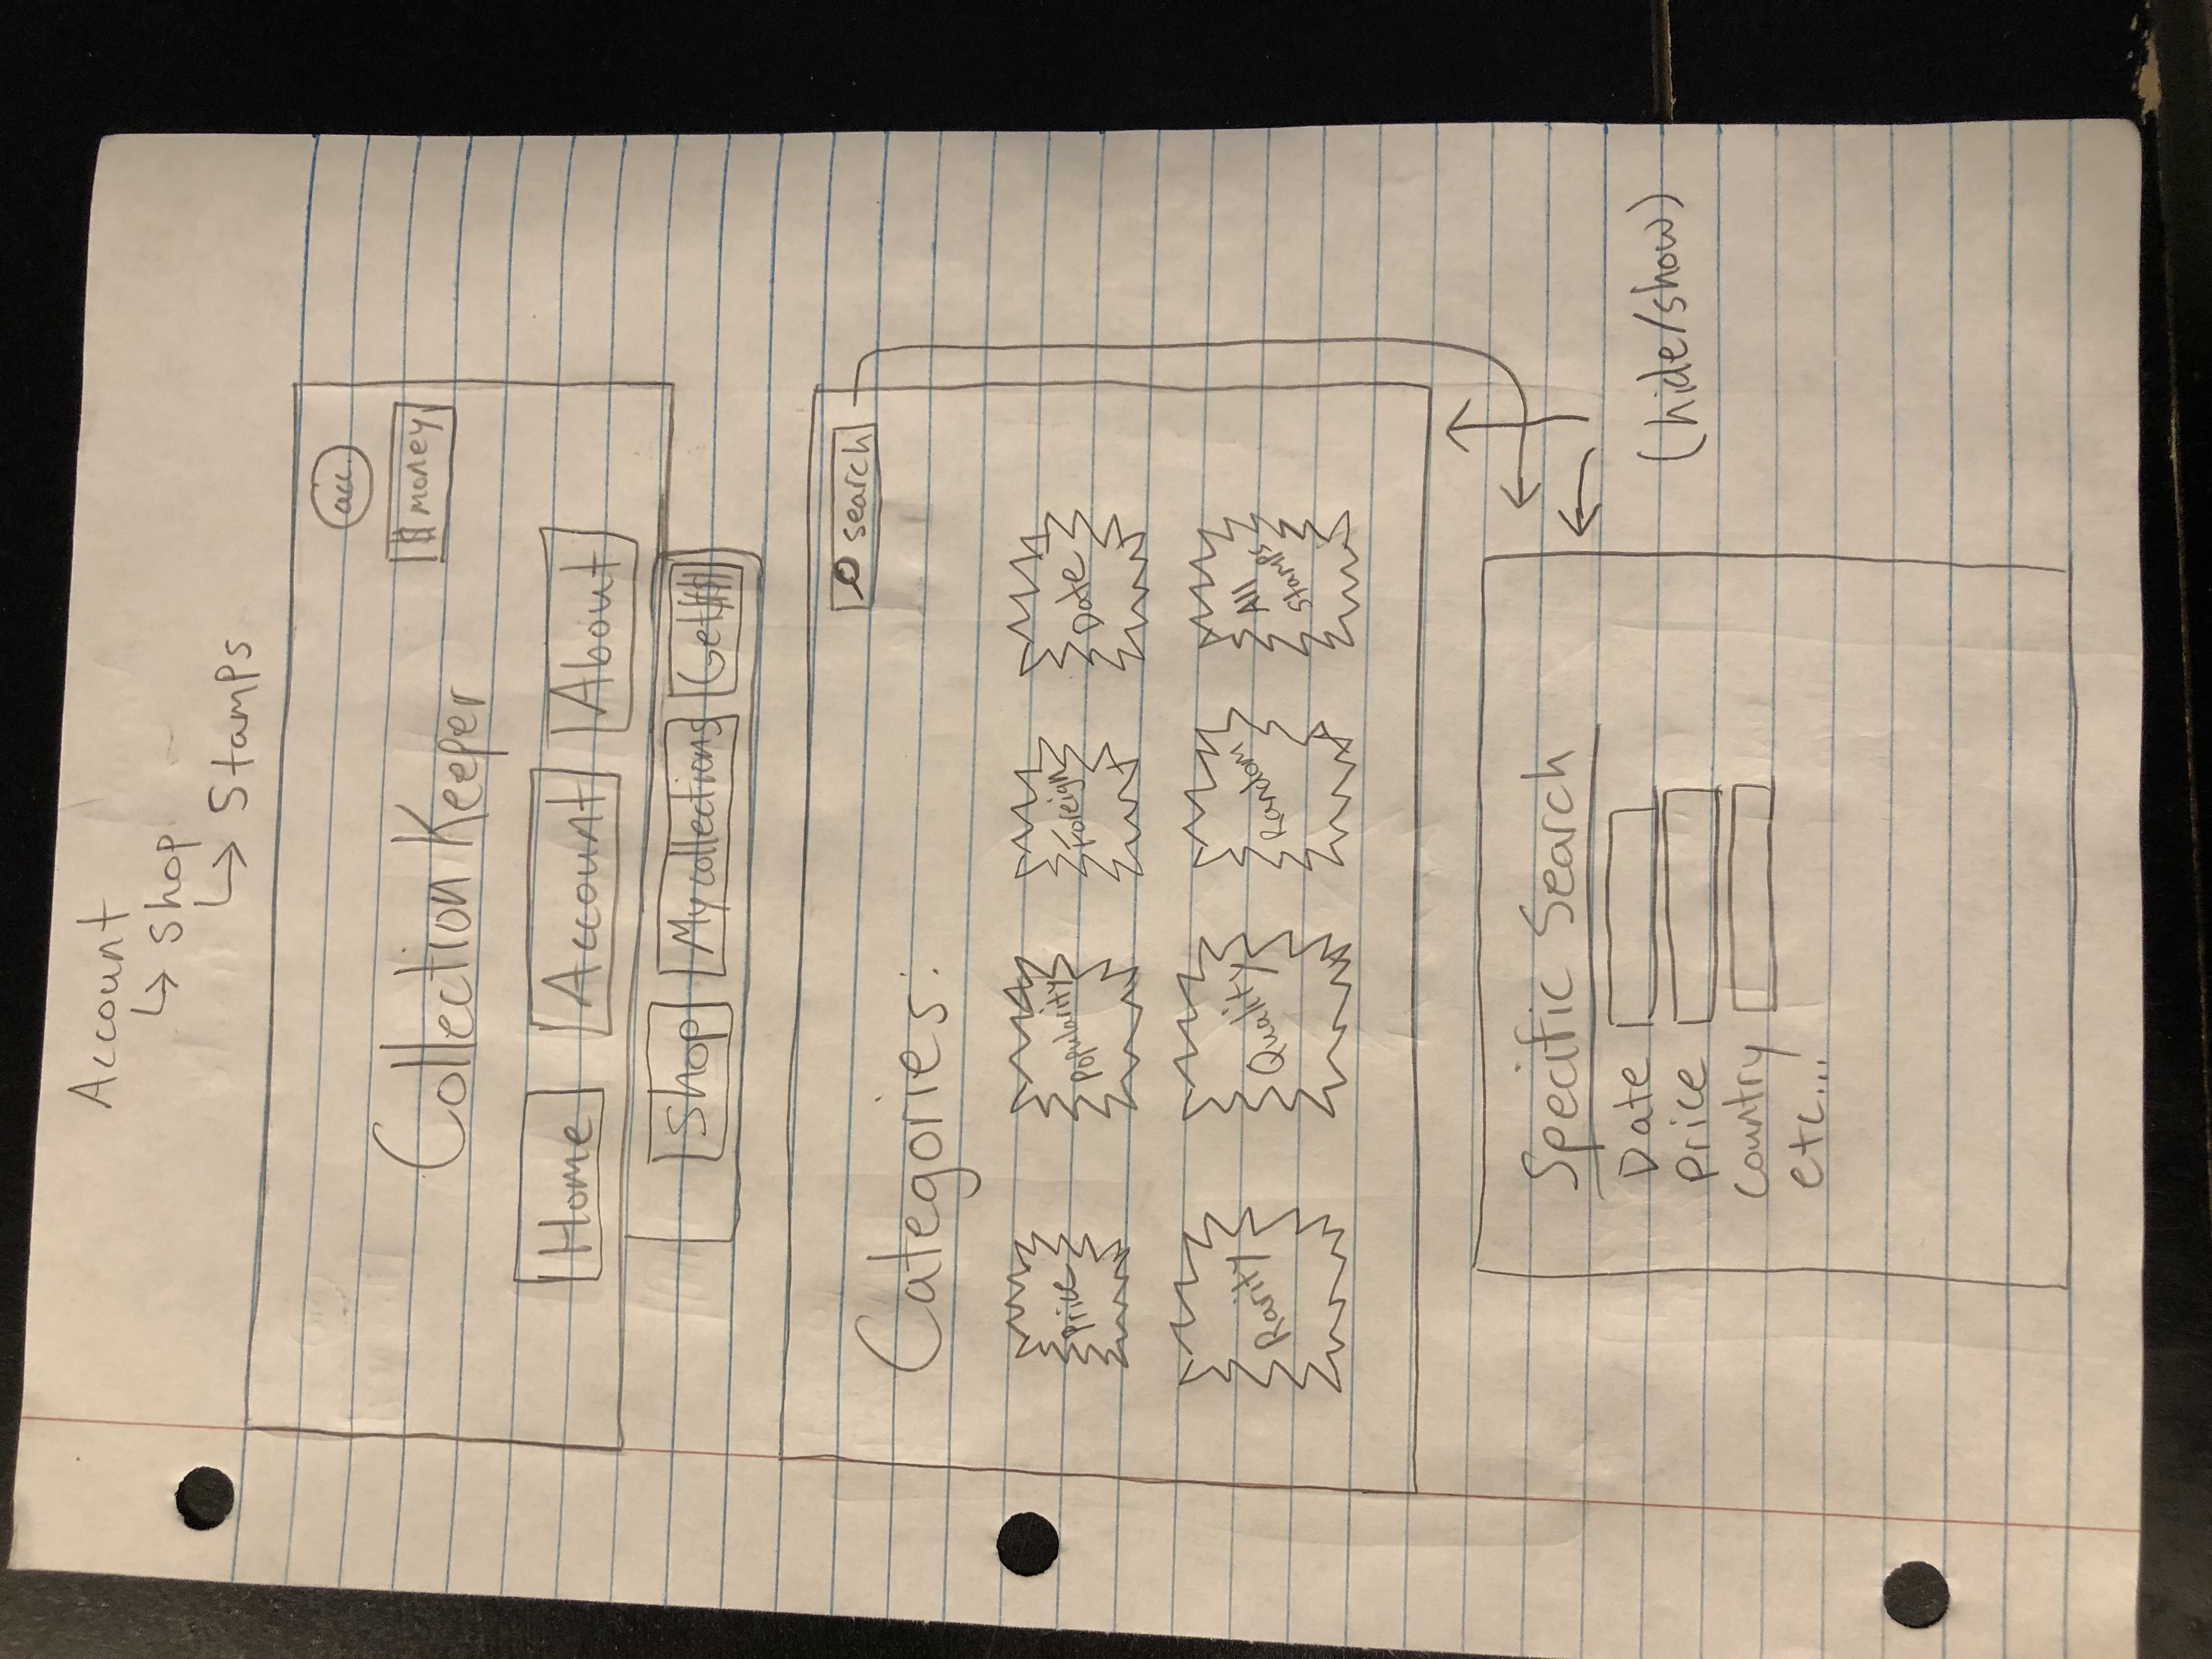 Account
↳ Shop
↳ Stamps
acc.
$ money
Collection Keeper
Home Account About
Shop My collections Get $$$
search
Categories:
Price Popularity Foreign Date
Rarity Quality Random All
Stamps
Specific Search
Date
Price
Country
etc...
(hide/show)